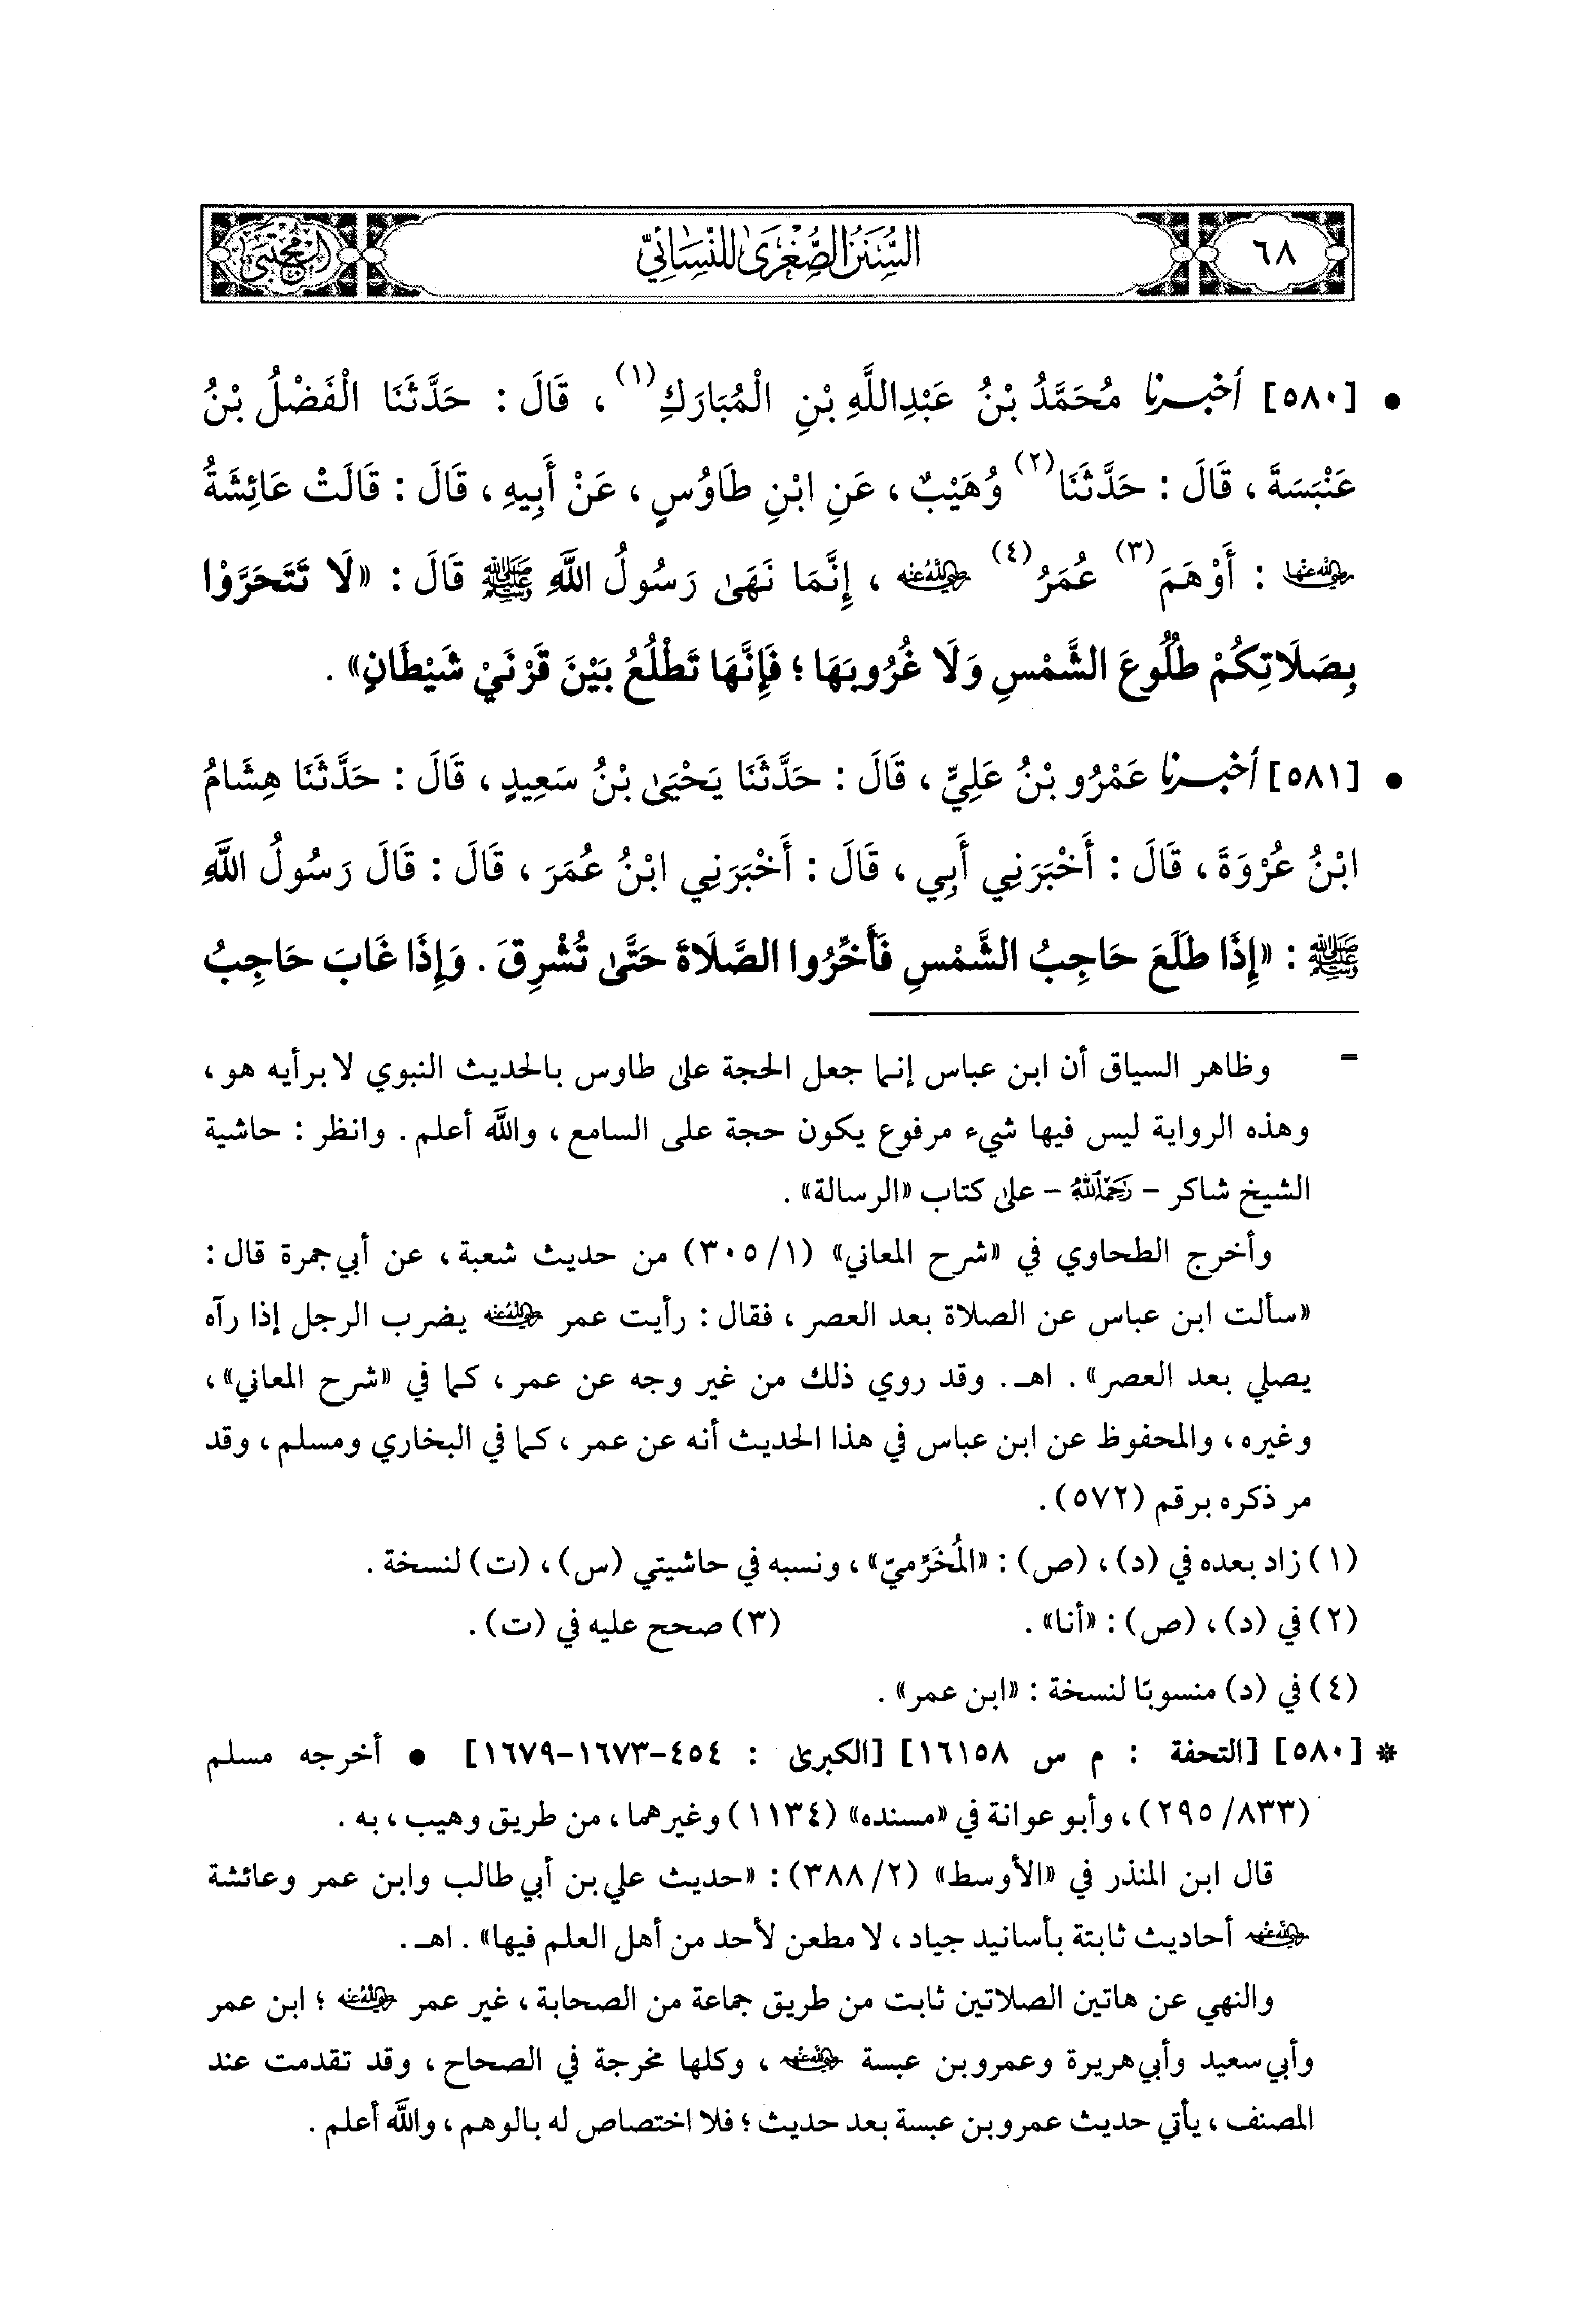 ٦٨
السُّنَنُ الصُّغْرَىٰ لِلنَّسَائِيِّ
المجتبى
• [٥٨٠] أَخْبَرَنَا مُحَمَّدُ بْنُ عَبْدِاللَّهِ بْنِ الْمُبَارَكِ(١) ، قَالَ : حَدَّثَنَا الْفَضْلُ بْنُ
عَنْبَسَةَ ، قَالَ : حَدَّثَنَا(٢) وُهَيْبٌ ، عَنِ ابْنِ طَاوُسٍ ، عَنْ أَبِيهِ ، قَالَ : قَالَتْ عَائِشَةُ
رضي الله عنها : أَوْهَمَ(٣) عُمَرُ(٤) رضي الله عنه ، إِنَّمَا نَهَىٰ رَسُولُ اللَّهِ ﷺ قَالَ : «لَا تَتَحَرَّوْا
بِصَلَاتِكُمْ طُلُوعَ الشَّمْسِ وَلَا غُرُوبَهَا ؛ فَإِنَّهَا تَطْلُعُ بَيْنَ قَرْنَيْ شَيْطَانٍ» .
• [٥٨١] أَخْبَرَنَا عَمْرُو بْنُ عَلِيٍّ ، قَالَ : حَدَّثَنَا يَحْيَىٰ بْنُ سَعِيدٍ ، قَالَ : حَدَّثَنَا هِشَامُ
ابْنُ عُرْوَةَ ، قَالَ : أَخْبَرَنِي أَبِي ، قَالَ : أَخْبَرَنِي ابْنُ عُمَرَ ، قَالَ : قَالَ رَسُولُ اللَّهِ
ﷺ : «إِذَا طَلَعَ حَاجِبُ الشَّمْسِ فَأَخِّرُوا الصَّلَاةَ حَتَّىٰ تُشْرِقَ . وَإِذَا غَابَ حَاجِبُ
= وظاهر السياق أن ابن عباس إنما جعل الحجة على طاوس بالحديث النبوي لا برأيه هو ،
وهذه الرواية ليس فيها شيء مرفوع يكون حجة على السامع ، والله أعلم . وانظر : حاشية
الشيخ شاكر - رحمه الله - على كتاب «الرسالة» .
وأخرج الطحاوي في «شرح المعاني» (١/ ٣٠٥) من حديث شعبة ، عن أبي جمرة قال :
«سألت ابن عباس عن الصلاة بعد العصر ، فقال : رأيت عمر رضي الله عنه يضرب الرجل إذا رآه
يصلي بعد العصر» . اهـ . وقد روي ذلك من غير وجه عن عمر ، كما في «شرح المعاني» ،
وغيره ، والمحفوظ عن ابن عباس في هذا الحديث أنه عن عمر ، كما في البخاري ومسلم ، وقد
مر ذكره برقم (٥٧٢) .
(١) زاد بعده في (د) ، (ص) : «المُخَرِّميّ» ، ونسبه في حاشيتي (س) ، (ت) لنسخة .
(٢) في (د) ، (ص) : «أنا» . (٣) صحح عليه في (ت) .
(٤) في (د) منسوبًا لنسخة : «ابن عمر» .
* [٥٨٠] [التحفة : م س ١٦١٥٨] [الكبرىٰ : ٤٥٤-١٦٧٣-١٦٧٩] • أخرجه مسلم
(٨٣٣/ ٢٩٥) ، وأبو عوانة في «مسنده» (١١٣٤) وغيرهما ، من طريق وهيب ، به .
قال ابن المنذر في «الأوسط» (٢/ ٣٨٨) : «حديث علي بن أبي طالب وابن عمر وعائشة
رضي الله عنهم أحاديث ثابتة بأسانيد جياد ، لا مطعن لأحد من أهل العلم فيها» . اهـ .
والنهي عن هاتين الصلاتين ثابت من طريق جماعة من الصحابة ، غير عمر رضي الله عنه ؛ ابن عمر
وأبي سعيد وأبي هريرة وعمرو بن عبسة رضي الله عنهم ، وكلها مخرجة في الصحاح ، وقد تقدمت عند
المصنف ، يأتي حديث عمرو بن عبسة بعد حديث ؛ فلا اختصاص له بالوهم ، والله أعلم .